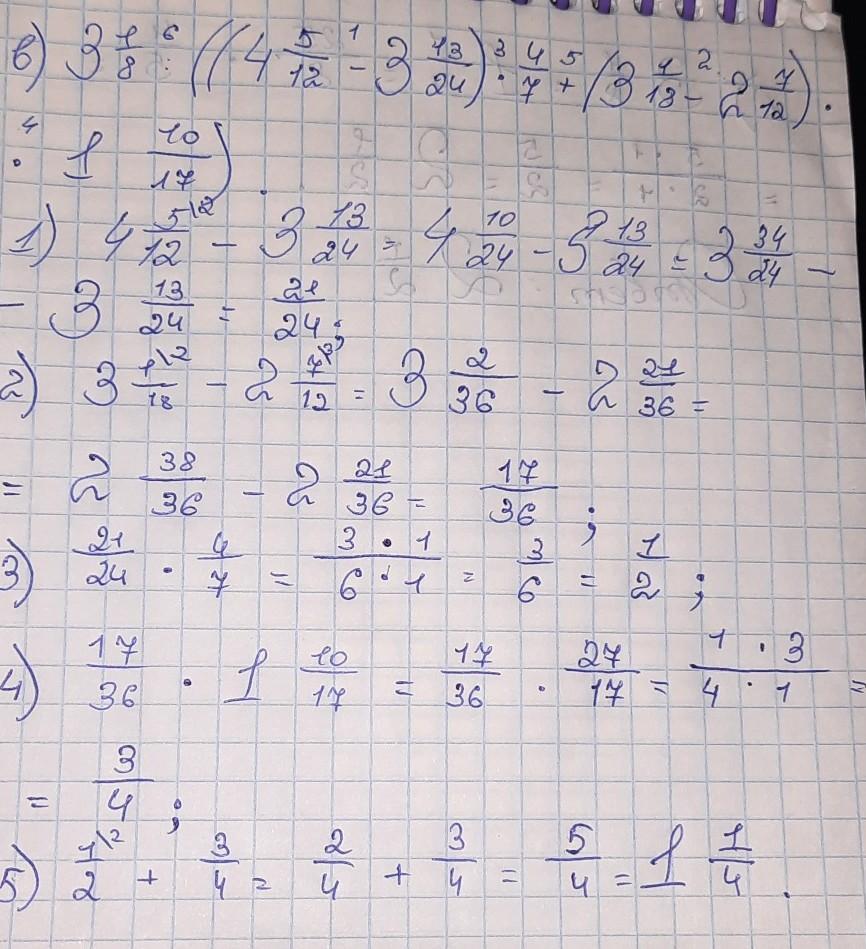 в) 3 1/8 : ((4 5/12 - 3 13/24) · 4/7 + (3 1/18 - 2 7/12) ·
· 1 10/17).
1) 4 5/12 - 3 13/24 = 4 10/24 - 3 13/24 = 3 34/24 -
- 3 13/24 = 21/24;
2) 3 1/18 - 2 7/12 = 3 2/36 - 2 21/36 =
= 2 38/36 - 2 21/36 = 17/36;
3) 21/24 · 4/7 = 3 · 1/6 · 1 = 3/6 = 1/2;
4) 17/36 · 1 10/17 = 17/36 · 27/17 = 1 · 3/4 · 1 =
= 3/4;
5) 1/2 + 3/4 = 2/4 + 3/4 = 5/4 = 1 1/4.